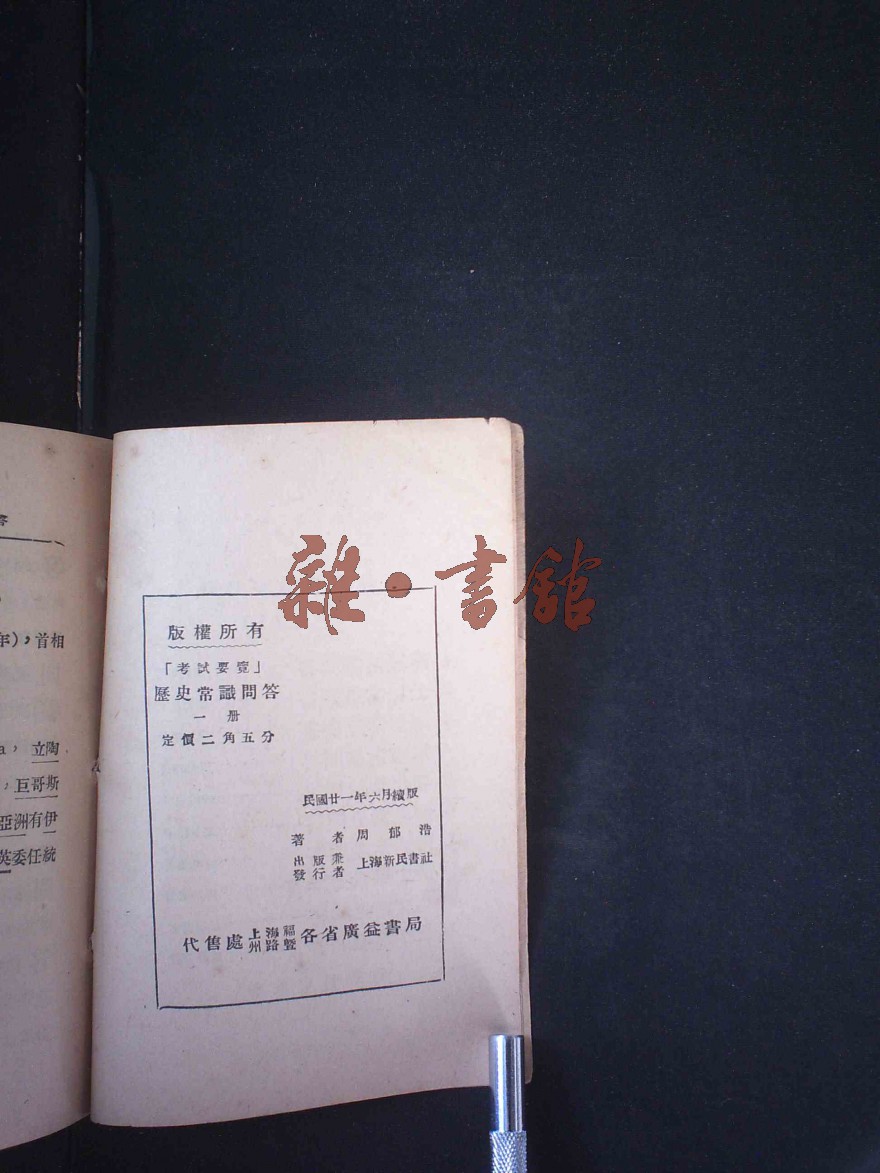 雜·書館
版權所有
「考試要覽」
歷史常識問答
一册
定價二角五分
民國廿一年六月續版
著者周郁浩
出版兼
發行者 上海新民書社
代售處上海福州路暨各省廣益書局
年),首相
a,立陶
,巨哥斯
亞洲有伊
英委任統